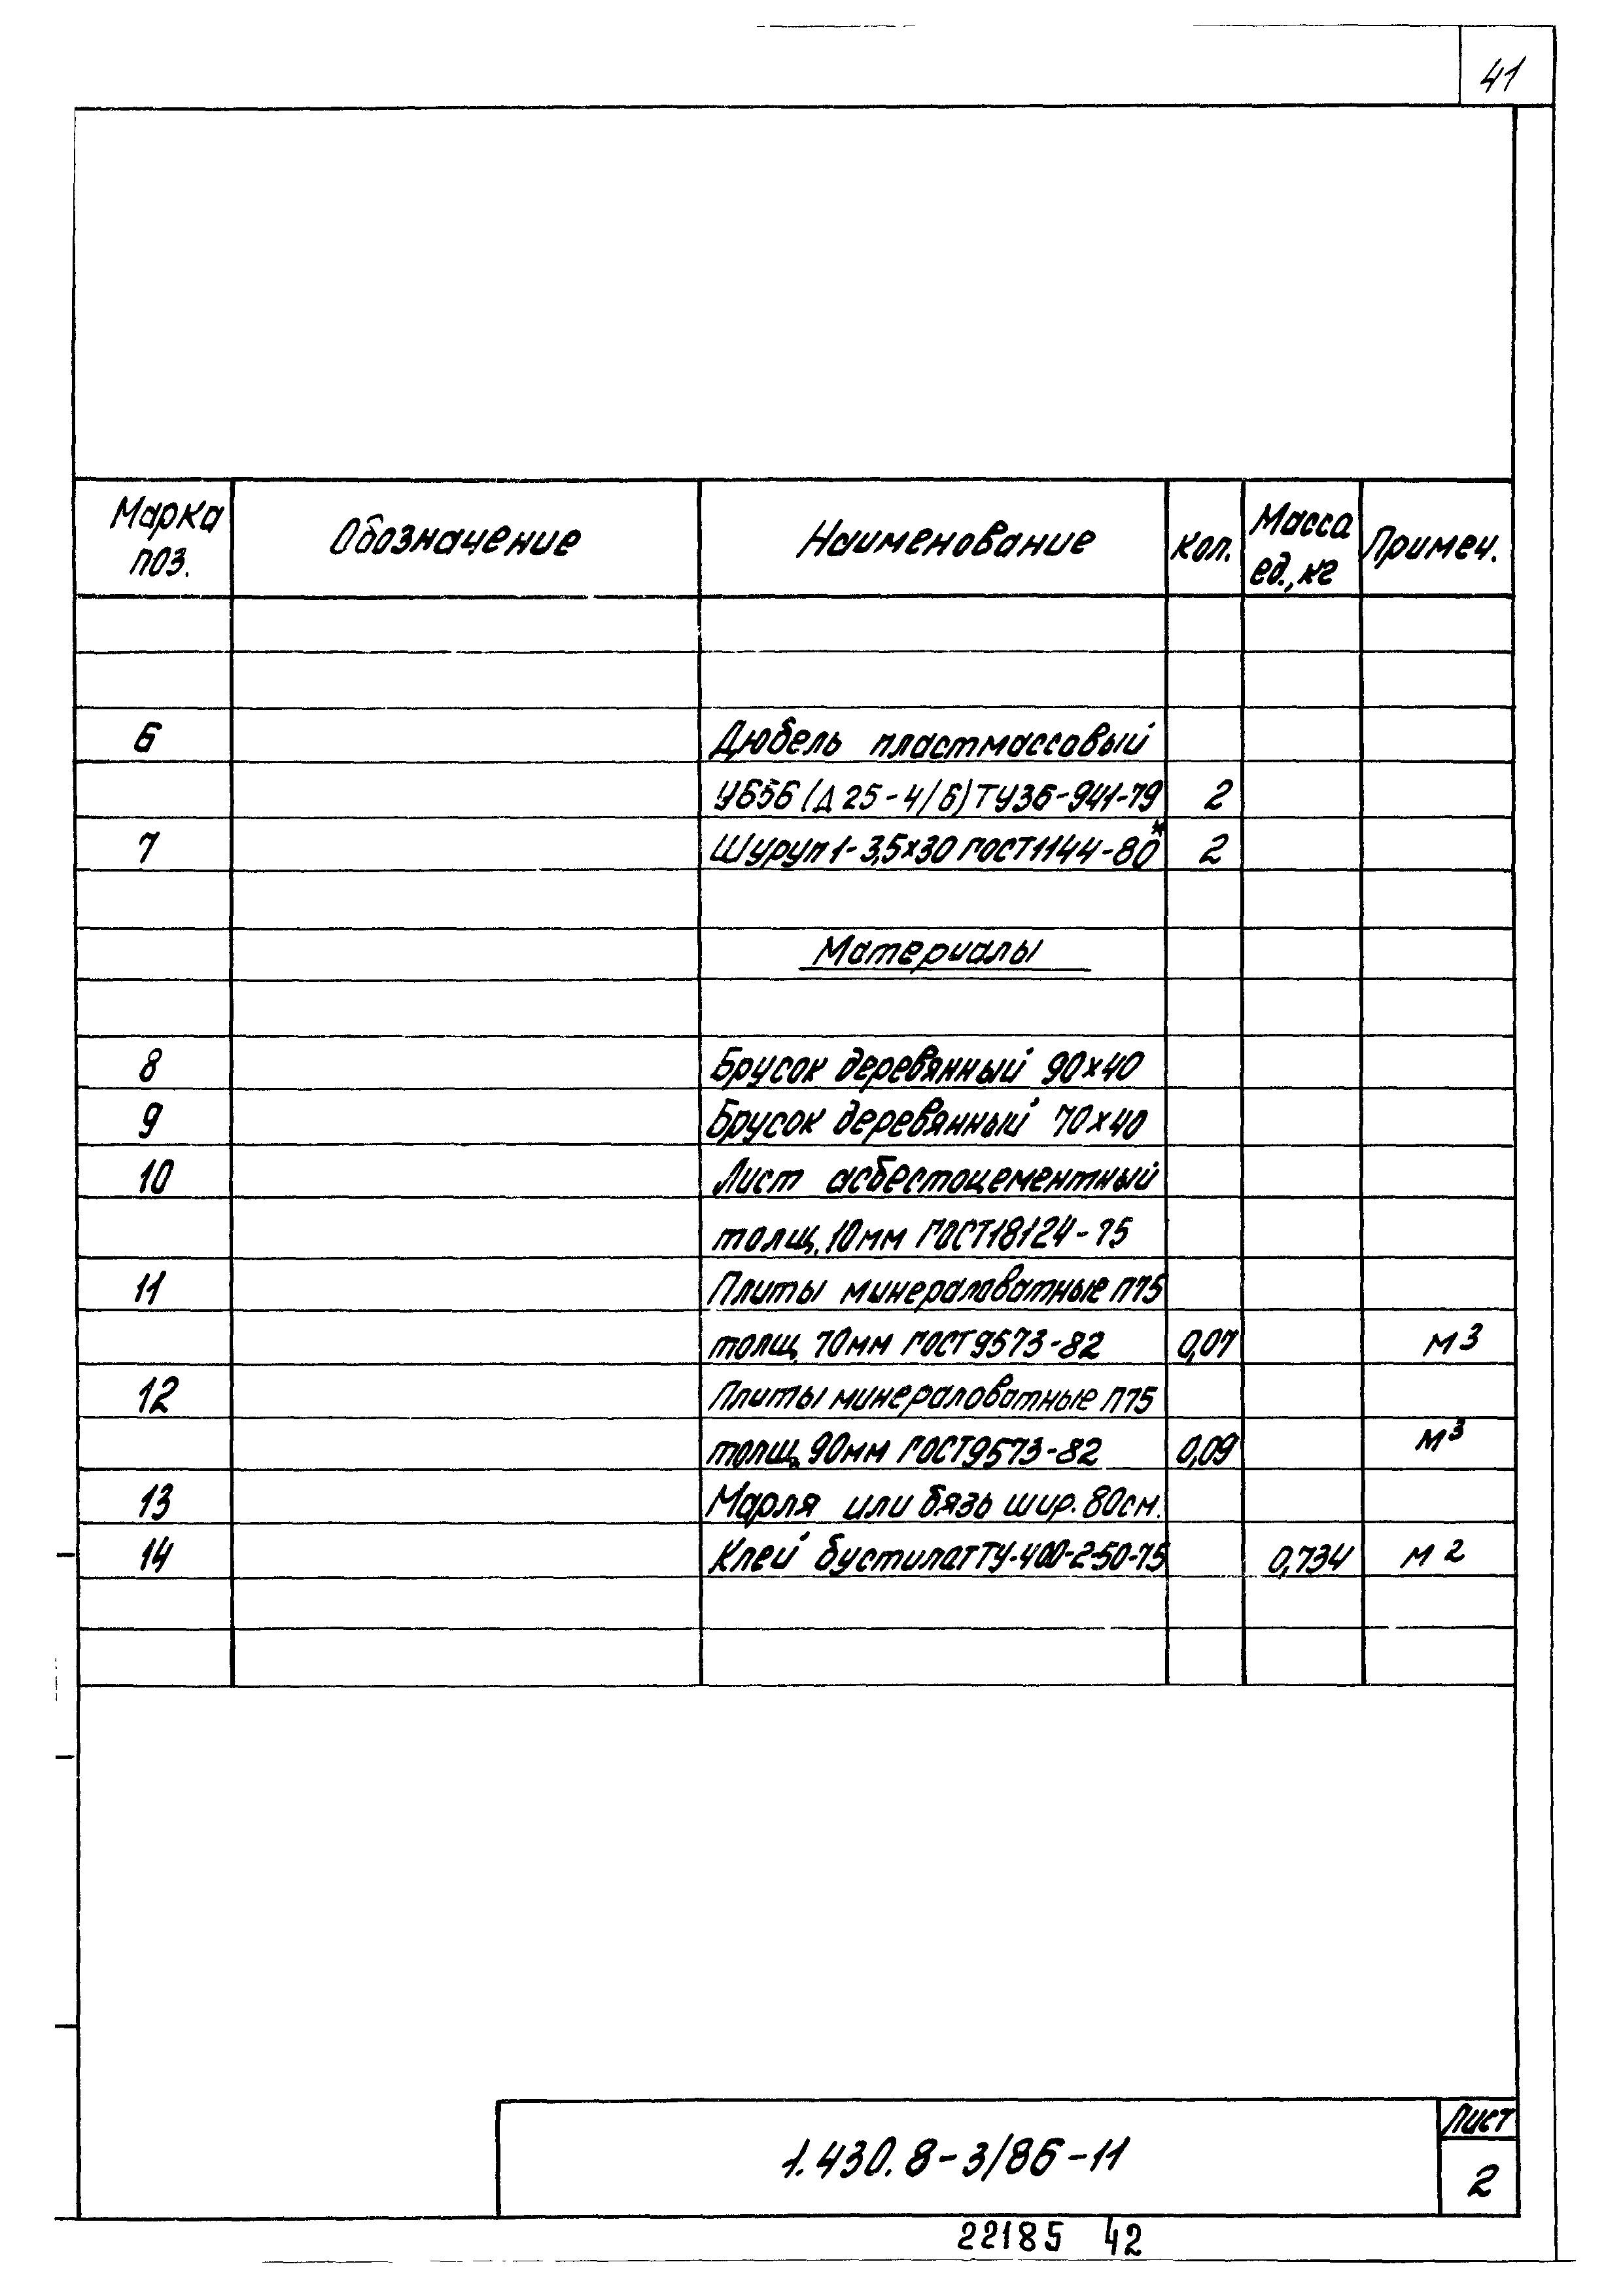 41
Марка поз. Обозначение Наименование Кол. Масса ед., кг Примеч.
6 Дюбель пластмассовый
У656 (Д 25-4/6) ТУ36-941-79 2
7 Шуруп 1-3,5х30 ГОСТ 1144-80* 2
Материалы
8 Брусок деревянный 90х40
9 Брусок деревянный 70х40
10 Лист асбестоцементный
толщ. 10мм ГОСТ18124-75
11 Плиты минераловатные П75
толщ. 70мм ГОСТ9573-82 0,07 м3
12 Плиты минераловатные П75
толщ. 90мм ГОСТ9573-82 0,09 м3
13 Марля или бязь шир. 80см.
14 Клей бустилат ТУ-400-2-50-75 0,734 м2
1.430.8-3/86-11
Лист
2
22185 42